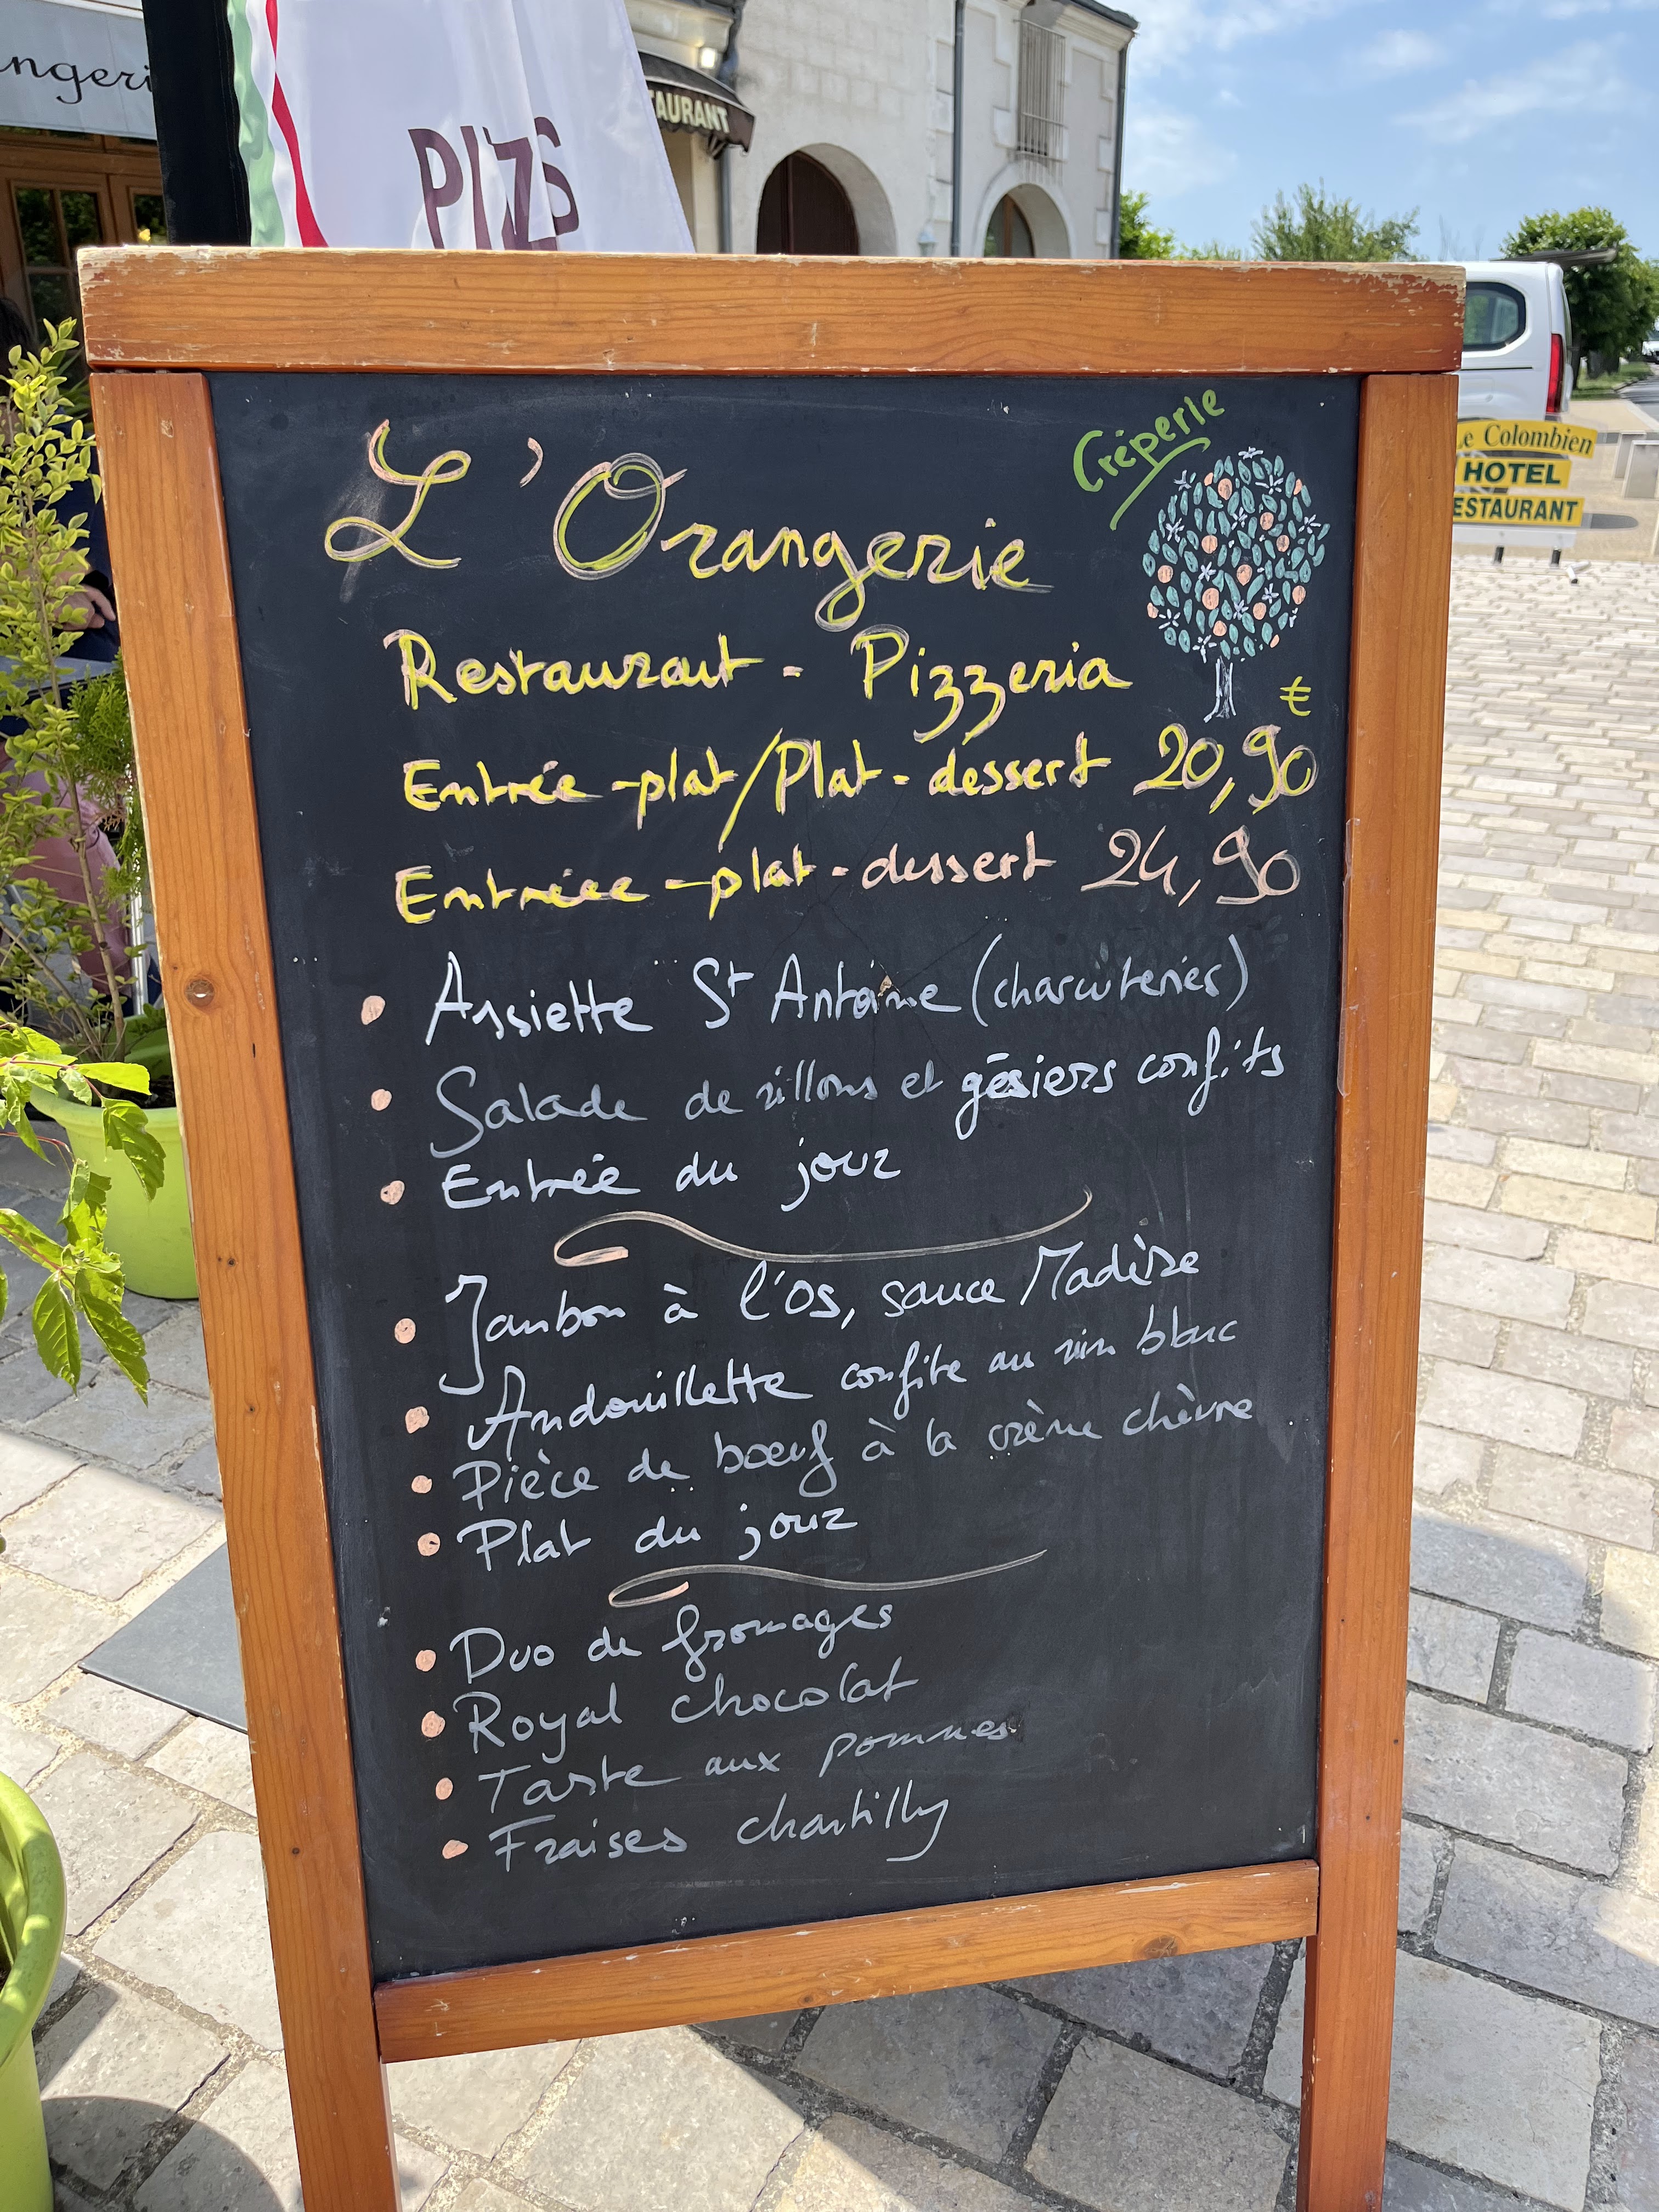 ngeri
PIZ
TAURANT
L'Orangerie
Crêperie
Restaurant - Pizzeria
€
Entrée-plat/Plat-dessert 20,90
Entrée-plat-dessert 24,90
• Assiette St Antoine (charcuteries)
• Salade de rillons et gésiers confits
• Entrée du jour
• Jambon à l'os, sauce Madère
• Andouillette confite au vin blanc
• Pièce de bœuf à la crème chèvre
• Plat du jour
• Duo de fromages
• Royal chocolat
• Tarte aux pommes
• Fraises chantilly
Le Colombien
HOTEL
ESTAURANT